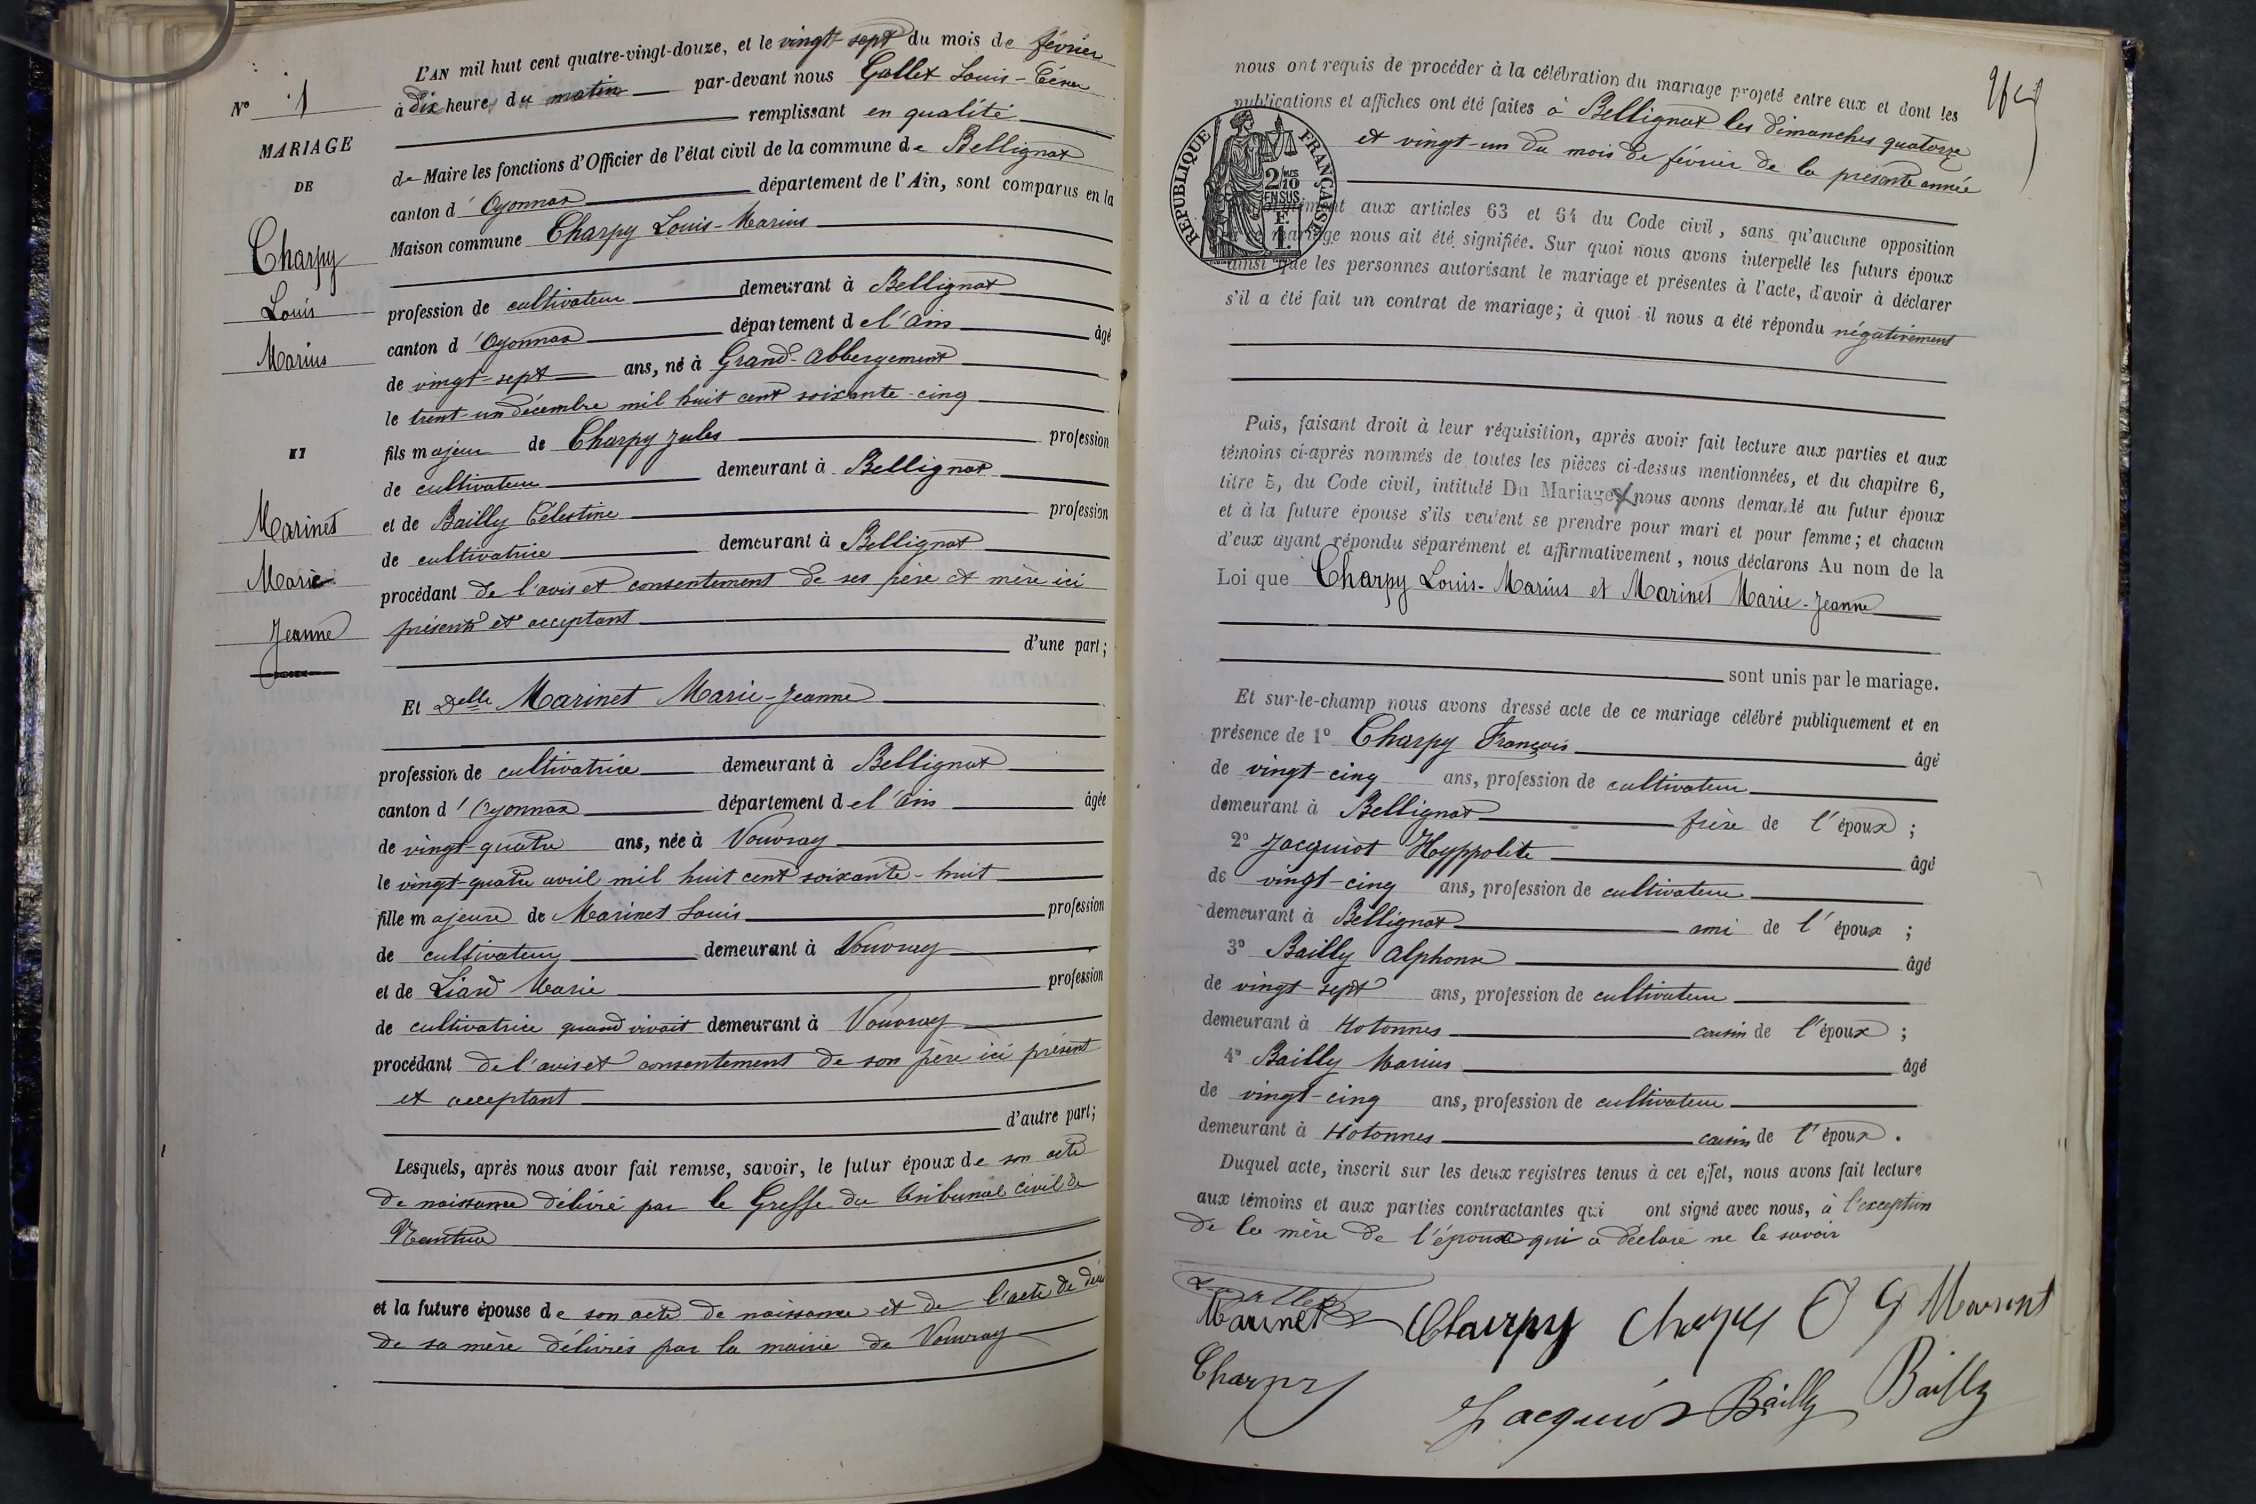 L'AN mil huit cent quatre-vingt-douze, et le vingt sept du mois de février
N° 1
à dix heures du matin par-devant nous Gallet Louis-César
MARIAGE
remplissant en qualité
DE
de Maire les fonctions d'Officier de l'état civil de la commune de Bellignat
canton d'Oyonnax département de l'Ain, sont comparus en la
Charpy
Maison commune Charpy Louis-Marius
Louis
profession de cultivateur demeurant à Bellignat
Marius
canton d'Oyonnax département de l'Ain âgé
de vingt-sept ans, né à Grand-Abbergement
le trent-un décembre mil huit cent soixante-cinq
ET
fils majeur de Charpy Jules profession
de cultivateur demeurant à Bellignat
Marinet
et de Bailly Célestine profession
Marie
de cultivatrice demeurant à Bellignat
Jeanne
procédant de l'avis et consentement de ses père et mère ici
présents et acceptant
d'une part;
Et Delle Marinet Marie-Jeanne
profession de cultivatrice demeurant à Bellignat
canton d'Oyonnax département de l'Ain âgée
de vingt-quatre ans, née à Vouvray
le vingt-quatre avril mil huit cent soixante-huit
fille majeure de Marinet Louis profession
de cultivateur demeurant à Vouvray
et de Liard Marie profession
de cultivatrice quand vivait demeurant à Vouvray
procédant de l'avis et consentement de son père ici présent
et acceptant
d'autre part;
Lesquels, après nous avoir fait remise, savoir, le futur époux de son acte
de naissance délivré par le Greffe du tribunal civil de
Nantua
et la future épouse de son acte de naissance et de l'acte de décès
de sa mère délivrés par la mairie de Vouvray
nous ont requis de procéder à la célébration du mariage projeté entre eux et dont les
publications et affiches ont été faites à Bellignat les dimanches quatorze
et vingt-un du mois de février de la présente année
RÉPUBLIQUE FRANÇAISE
2/10 EN SUS
aux articles 63 et 64 du Code civil, sans qu'aucune opposition
mariage nous ait été signifiée. Sur quoi nous avons interpellé les futurs époux
ainsi que les personnes autorisant le mariage et présentes à l'acte, d'avoir à déclarer
s'il a été fait un contrat de mariage; à quoi il nous a été répondu négativement
Puis, faisant droit à leur réquisition, après avoir fait lecture aux parties et aux
témoins ci-après nommés de toutes les pièces ci-dessus mentionnées, et du chapitre 6,
titre 5, du Code civil, intitulé Du Mariage, nous avons demandé au futur époux
et à la future épouse s'ils veulent se prendre pour mari et pour femme; et chacun
d'eux ayant répondu séparément et affirmativement, nous déclarons Au nom de la
Loi que Charpy Louis-Marius et Marinet Marie-Jeanne
sont unis par le mariage.
Et sur-le-champ nous avons dressé acte de ce mariage célébré publiquement et en
présence de 1° Charpy François âgé
de vingt-cinq ans, profession de cultivateur
demeurant à Bellignat frère de l'époux;
2° Jacquiot Hyppolite âgé
de vingt-cinq ans, profession de cultivateur
demeurant à Bellignat ami de l'époux;
3° Bailly Alphonse âgé
de vingt-sept ans, profession de cultivateur
demeurant à Hotonnes cousin de l'époux;
4° Bailly Marius âgé
de vingt-cinq ans, profession de cultivateur
demeurant à Hotonnes cousin de l'époux.
Duquel acte, inscrit sur les deux registres tenus à cet effet, nous avons fait lecture
aux témoins et aux parties contractantes qui ont signé avec nous, à l'exception
de la mère de l'époux qui a déclaré ne le savoir
Marinet Charpy Charpy
Charpy Jacquiot Bailly Bailly